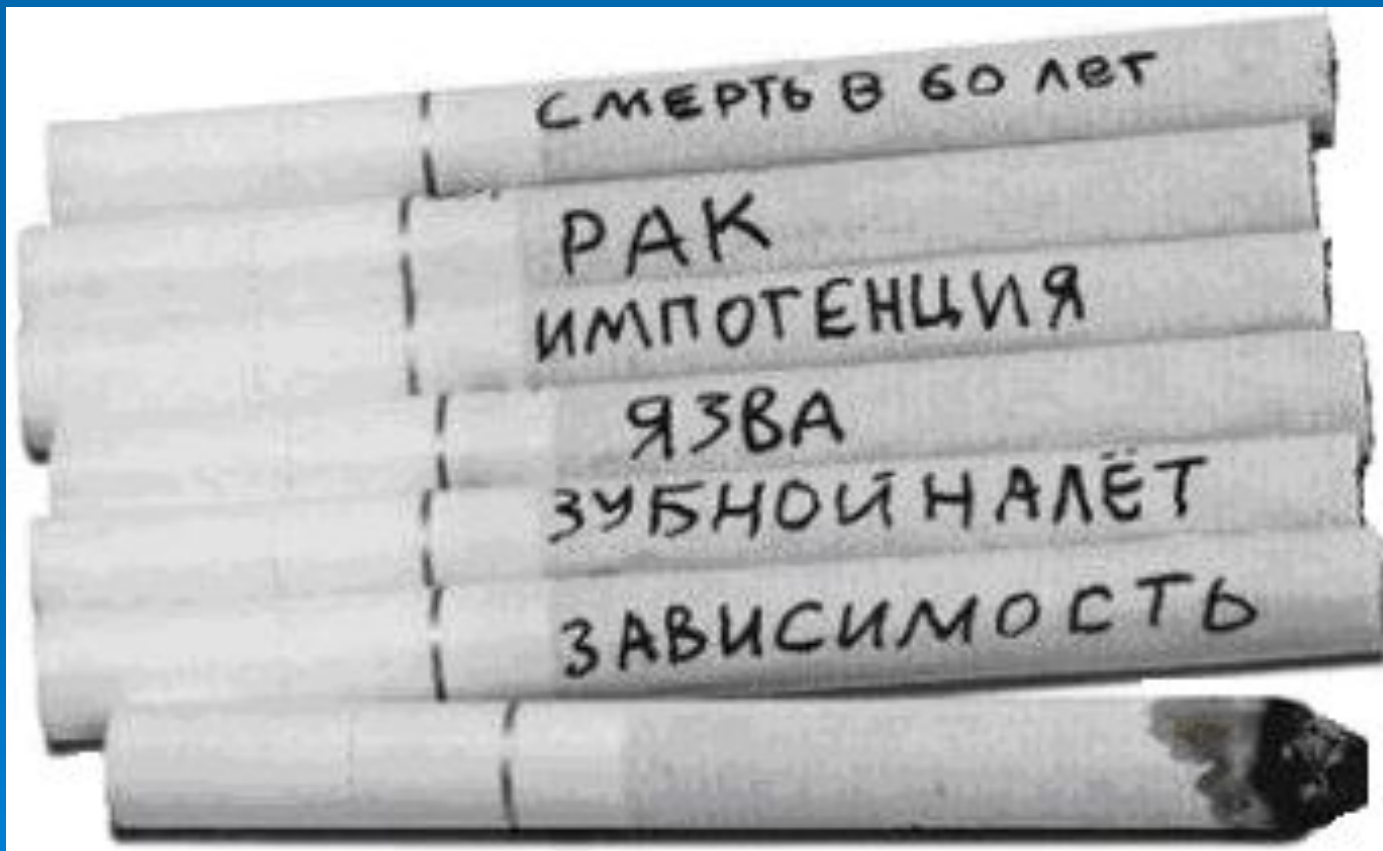 СМЕРТЬ В 60 лет
РАК
ИМПОТЕНЦИЯ
ЯЗВА
ЗУБНОЙ НАЛЁТ
ЗАВИСИМОСТЬ